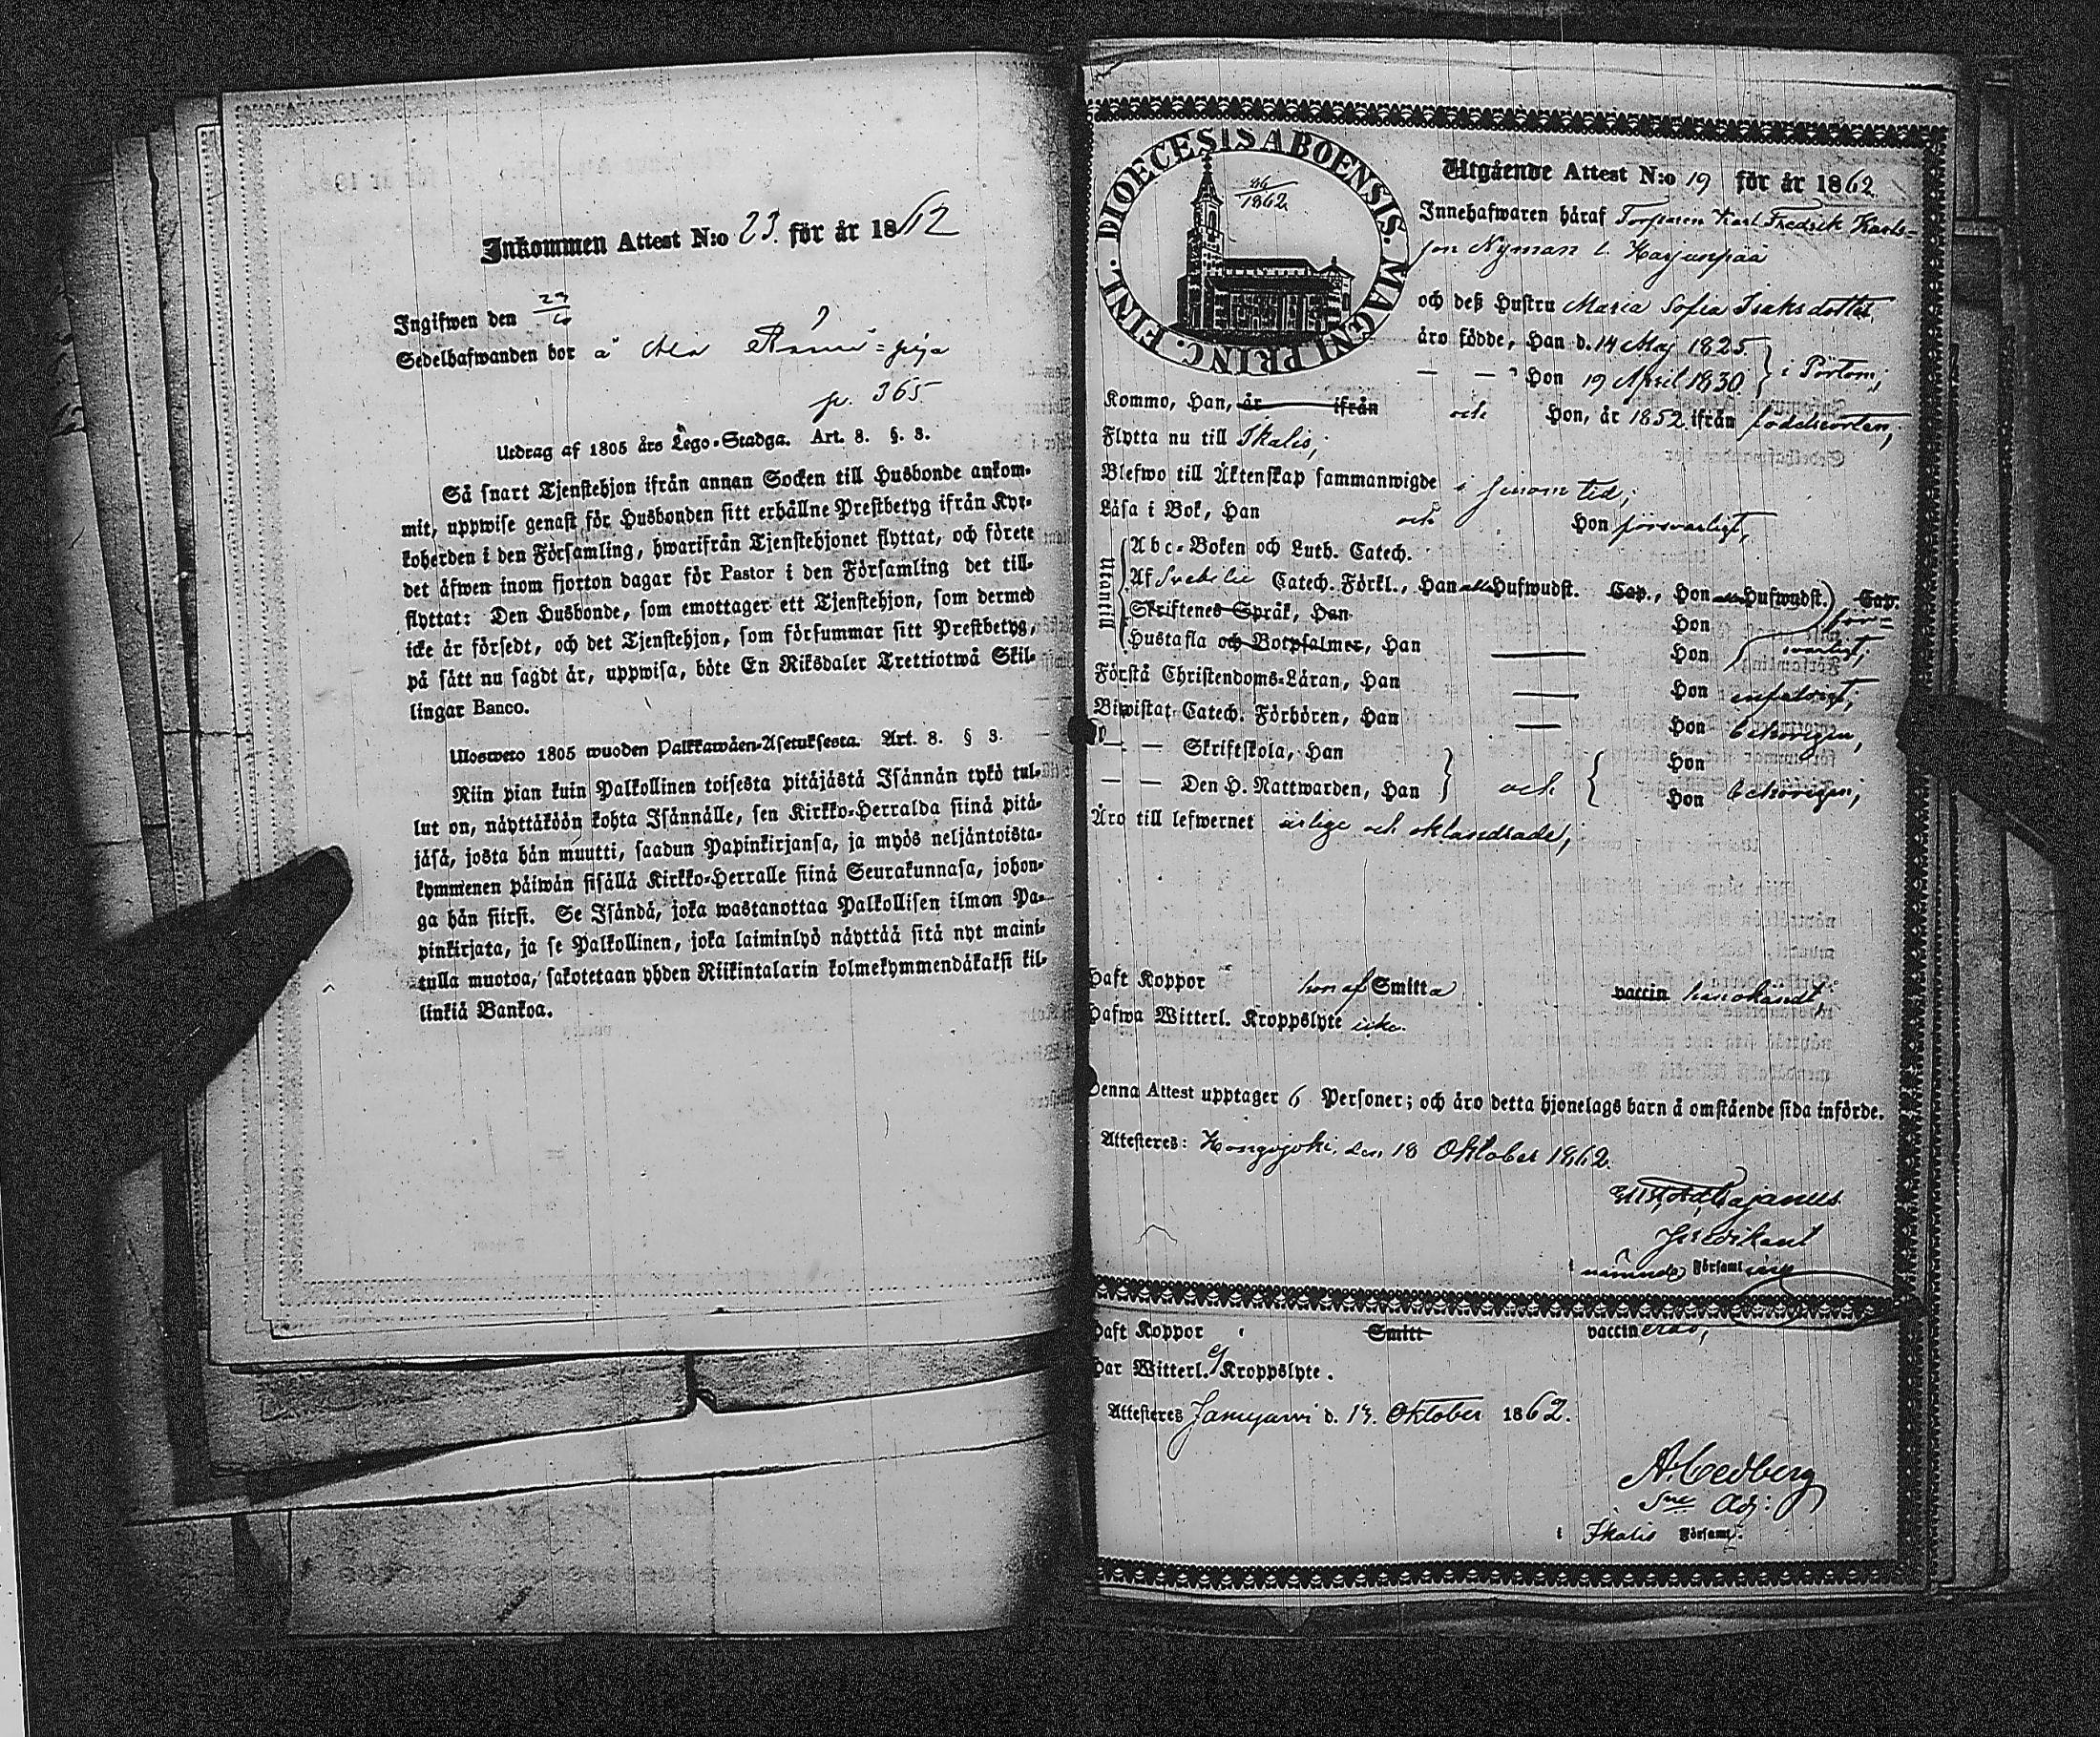 Inkommen Attest N:o 23. för år 1862
Ingifwen den
Sedelhafwanden bor å
p. 365
Utdrag af 1805 års Lego-Stadga. Art. 8. §. 3.
Så snart Tjenstehjon ifrån annan Socken till Husbonde ankom-
mit, uppwise genast för Husbonden sitt erhållne Prestbetyg ifrån Kyr-
koherden i den Församling, hwarifrån Tjenstehjonet flyttat, och förete
det äfwen inom fjorton dagar för Pastor i den Församling det till-
flyttat: Den Husbonde, som emottager ett Tjenstehjon, som dermed
icke är försedt, och det Tjenstehjon, som försummar sitt Prestbetyg,
på sätt nu sagdt är, uppwisa, böte En Riksdaler Trettiotwå Skil-
lingar Banco.
Ulosweto 1805 wuoden Palkkawäen-Asetuksesta. Art. 8. § 3.
Niin pian kuin Palkollinen toisesta pitäjästä Isännän tykö tul-
lut on, näyttäköön kohta Isännälle, sen Kirkko-Herralda siinä pitä-
jäsä, josta hän muutti, saadun Papinkirjansa, ja myös neljäntoista-
kymmenen päiwän sisällä Kirkko-Herralle siinä Seurakunnasa, johon-
ga hän siirsi. Se Isändä, joka wastanottaa Palkollisen ilman Pa-
pinkirjata, ja se Palkollinen, joka laiminlyö näyttää sitä nyt maini-
tulla muotoa, sakotetaan yhden Riikintalarin kolmekymmendäkaksi kil-
linkiä Bankoa.
DIOECESIS ABOENSIS. MAGNI PRINC. FINL.
1862
Utgående Attest N:o 19 för år 1862
Innehafwaren häraf Torparen Karl Fredrik Karls-
son Nyman l. Harjunpää
och deß Hustru Maria Sofia Isaksdotter,
äro födde, Han d. 14 Maj 1825
— — Hon 19 April 1830 } i Pörtom;
Kommo, Han, år ifrån och Hon, år 1852 ifrån födelseorten,
Flytta nu till Ikalis;
Blefwo till Äktenskap sammanwigde i sinom tid;
Läsa i Bok, Han och Hon försvarligt,
Utantill
Abc-Boken och Luth. Catech.
Af Svebilii Catech. Förkl., Han alla Hufwudst. Cap., Hon alla Hufwudst. Cap.
Skriftenes Språk, Han Hon för-
Hustafla och Botpsalmer, Han — Hon svarligt;
Förstå Christendoms-Läran, Han — Hon enfaldigt;
Biwistat Catech. Förhören, Han — Hon behörigen,
— — Skriftskola, Han Hon
— — Den H. Nattwarden, Han } och { Hon behörigen;
Äro till lefwernet ärlige och oklandrade;
Haft Koppor hon af Smitta vaccin han okändt,
Hafwa Witterl. Kroppslyte icke.
Denna Attest upptager 6 Personer; och äro detta hjonelags barn å omstående sida införde.
Attesteres: Hongojoki, den 18 Oktober 1862.
Cajanus
i nämnde Församl
Haft Koppor Smitt vaccineras,
Har Witterl. ej Kroppslyte.
Attesteres Jämijärvi d. 13. Oktober 1862.
A. Cedberg
Adj:
i Ikalis Församl.